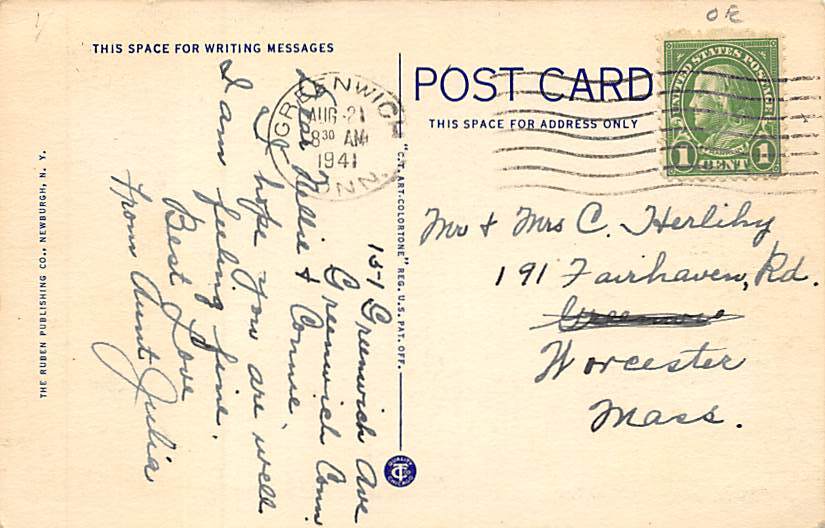 THIS SPACE FOR WRITING MESSAGES
POST CARD
THIS SPACE FOR ADDRESS ONLY
GREENWICH
AUG 21
8 30 AM
1941
CONN.
UNITED STATES POSTAGE
1 CENT 1
151 Greenwich Ave
Greenwich Conn.
Dear Nellie & Connie,
I hope you are well
I am feeling fine.
Best Love
From Aunt Julia
Mr & Mrs C. Herlihy
191 Fairhaven, Rd.
Worcester
Mass.
THE RUBEN PUBLISHING CO., NEWBURGH, N. Y.
"C.T. ART-COLORTONE" REG. U.S. PAT. OFF.
QUALITY
CT
CHICAGO